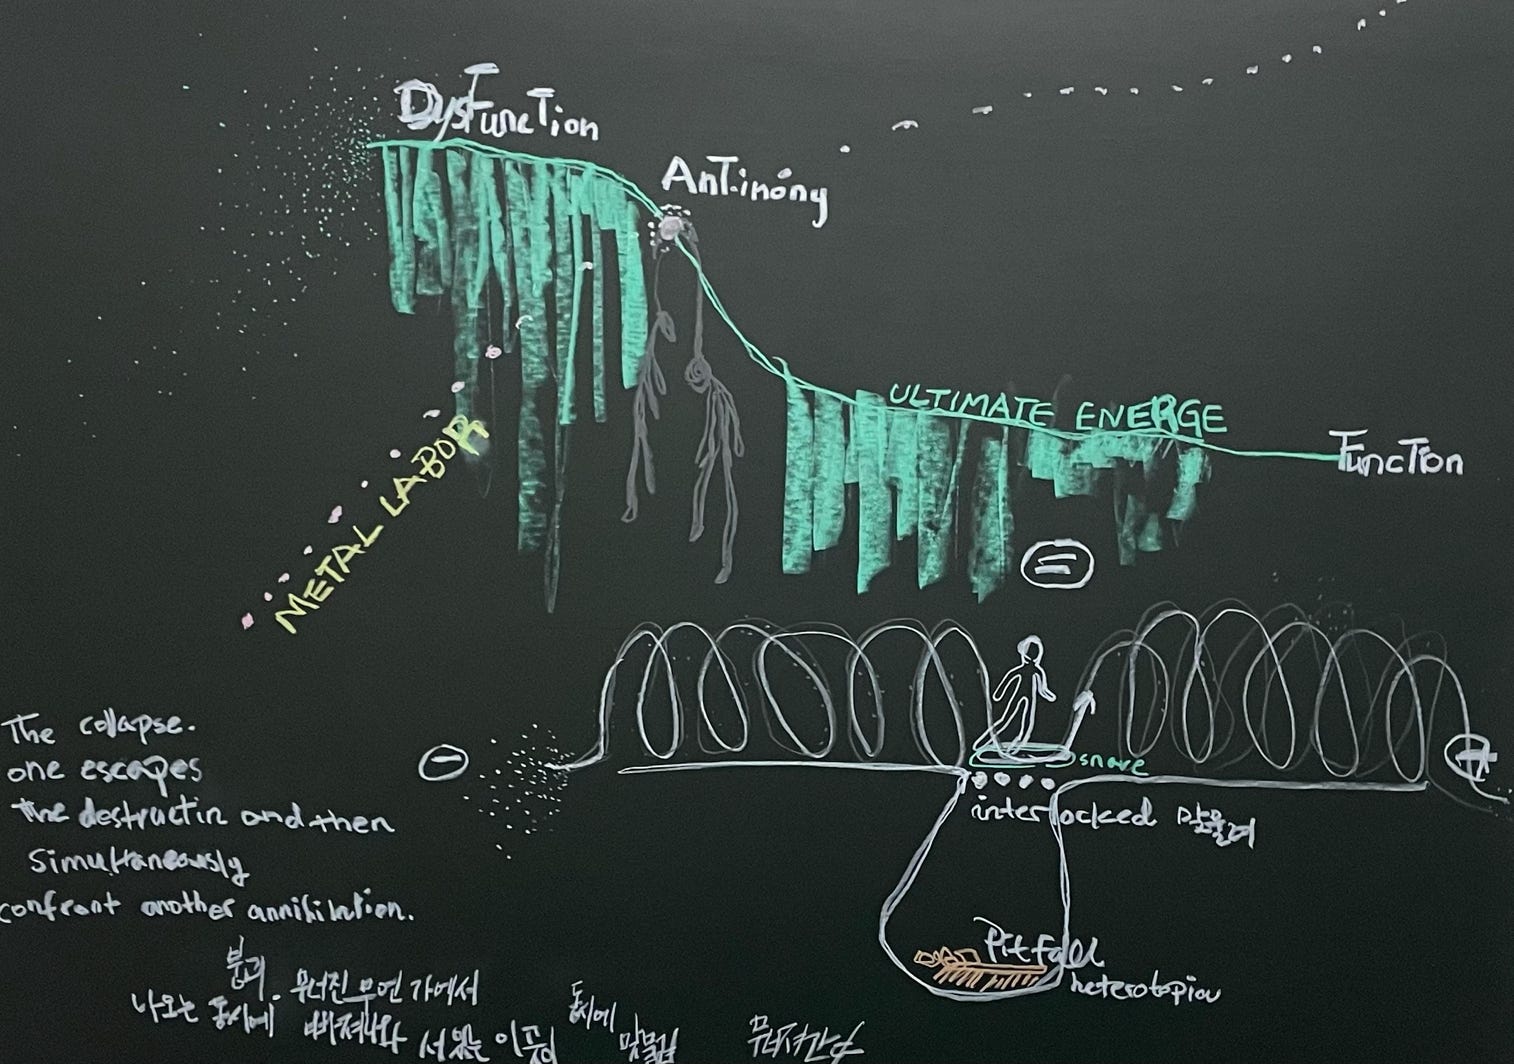 DysFuncTion
AnTinony
ULTIMATE ENERGE
FuncTion
METAL LABOR
=
The collapse.
one escapes
the destructin and then
simultaneously
confront another annihilation.
−
+
snare
interlocked 맞물려
Pitfall
heterotopiou
붕괴. 무너진 무언가에서
나오는 동시에 빠져나와 서있는 이곳이
동시에
맞물림